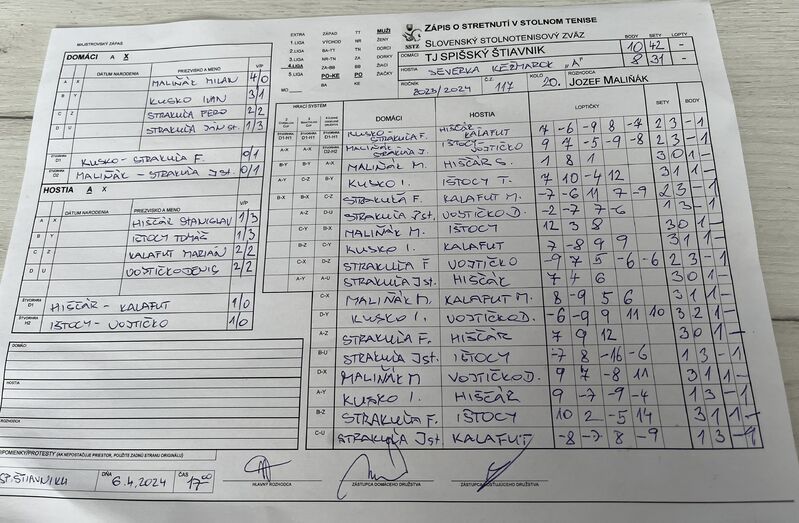 MAJSTROVSKÝ ZÁPAS
DOMÁCI A X
DÁTUM NARODENIA PRIEZVISKO A MENO V/P
A X MALIŇÁK MILAN 4/0
B Y KUSKO IVAN 3/1
C Z STRAKUĽA FERO 2/2
D U STRAKUĽA JÁN st. 1/3
ŠTVORHRA D1 KUSKO - STRAKUĽA F. 0/1
ŠTVORHRA D2 MALIŇÁK - STRAKUĽA Jst. 0/1
HOSTIA A X
DÁTUM NARODENIA PRIEZVISKO A MENO V/P
A X HIŠČÁR STANISLAV 1/3
B Y IŠTOCY TOMÁŠ 1/3
C Z KALAFUT MARIÁN 2/2
D U VOJTIČKO DENIS 2/2
ŠTVORHRA D1 HIŠČÁR - KALAFUT 1/0
ŠTVORHRA H2 IŠTOCY - VOJTIČKO 1/0
DOMÁCI
HOSTIA
ROZHODCA
PRIPOMIENKY/PROTESTY (AK NEPOSTAČUJE PRIESTOR, POUŽITE ZADNÚ STRANU ORIGINÁLU)
SP. ŠTIAVNIKU DŇA 6.4.2024 ČAS 17:00
HLAVNÝ ROZHODCA ZÁSTUPCA DOMÁCEHO DRUŽSTVA ZÁSTUPCA HOSŤUJÚCEHO DRUŽSTVA
EXTRA ZÁPAD TT MUŽI
1.LIGA VÝCHOD NR ŽENY
2.LIGA BA-TT TN DORCI
3.LIGA NR-TN ZA DORKY
4.LIGA ZA-BB BB ŽIACI
5.LIGA PO-KE PO ŽIAČKY
MO BA KE
SSTZ
ZÁPIS O STRETNUTÍ V STOLNOM TENISE
SLOVENSKÝ STOLNOTENISOVÝ ZVÄZ
BODY SETY LOPTY
TJ SPIŠSKÝ ŠTIAVNIK 10 42 -
HOSTIA SEVERKA KEŽMAROK "A" 8 31 -
ROČNÍK 2023/2024 Č.Z. 117 KOLO 20. ROZHODCA JOZEF MALIŇÁK
HRACÍ SYSTÉM DOMÁCI HOSTIA LOPTIČKY SETY BODY
D1-H1 D1-H1 D1-H1 KUSKO - STRAKUĽA F. HIŠČÁR - KALAFUT 7 -6 -9 8 -4 2 3 - 1
A-X A-X D2-H2 MALIŇÁK - STRAKUĽA J. IŠTOCY - VOJTIČKO 9 7 -5 -9 -8 2 3 - 1
B-Y B-Y A-X MALIŇÁK M. HIŠČÁR S. 1 8 1 3 0 1 -
A-Y C-Z B-Y KUSKO I. IŠTOCY T. 7 10 -4 12 3 1 1 -
B-X B-X C-Z STRAKUĽA F. KALAFUT M. -7 -6 11 7 -9 2 3 - 1
A-Z D-U STRAKUĽA Jst. VOJTIČKO D. -2 -7 7 -6 1 3 - 1
C-Y B-X MALIŇÁK M. IŠTOCY 12 3 8 3 0 1 -
B-Z C-Y KUSKO I. KALAFUT 7 -8 9 9 3 1 1 -
C-X D-Z STRAKUĽA F VOJTIČKO -9 7 5 -6 -6 2 3 - 1
A-Y A-U STRAKUĽA Jst. HIŠČÁR 7 4 6 3 0 1 -
C-X MALIŇÁK M. KALAFUT M. 8 -9 5 6 3 1 1 -
D-Y KUSKO I. VOJTIČKO D. -6 -9 9 11 10 3 2 1 -
A-Z STRAKUĽA F. HIŠČÁR 7 9 12 3 0 1 -
B-U STRAKUĽA Jst. IŠTOCY -7 8 -16 -6 1 3 - 1
D-X MALIŇÁK M VOJTIČKO D. 9 7 -8 11 3 1 1 -
A-Y KUSKO I. HIŠČÁR 9 -7 -9 -4 1 3 - 1
B-Z STRAKUĽA F. IŠTOCY 10 2 -5 14 3 1 1 -
C-U STRAKUĽA Jst KALAFUT -8 -7 8 -9 1 3 - 1